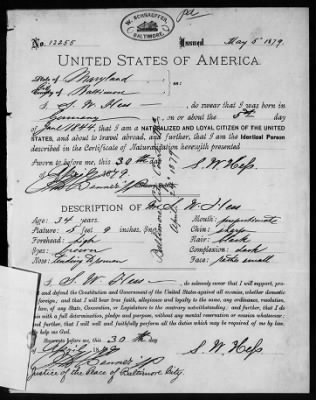 W. SCHNAUFFER,
BALTIMORE.
pd
No. 13255 Issued May 5" 1879.
UNITED STATES OF AMERICA.
State of Maryland
City of Baltimore ss:
I, S. W. Hess, do swear that I was born in
Germany on or about the 5th day
of 1844, that I am a NATURALIZED AND LOYAL CITIZEN OF THE UNITED
STATES, and about to travel abroad, and further, that I am the Identical Person
described in the Certificate of Naturalization herewith presented
Sworn to before me, this 30th day
of April 1879. S. W. Hess
Baltimore City Court
April 1879
DESCRIPTION of Mr. S. W. Hess
Age: 34 years. Mouth: proportionate
Stature: 5 feet 9 inches, Eng. Chin: sharp
Forehead: high Hair: black
Eyes: brown Complexion: dark
Nose: Face: rather small
I, S. W. Hess, do solemnly swear that I will support, protect
and defend the Constitution and Government of the United States against all enemies, whether domestic
or foreign; and that I will bear true faith, allegiance and loyalty to the same, any ordinance, resolution
or law of any State, Convention, or Legislature to the contrary notwithstanding; and further, that I do
this with a full determination, pledge and purpose, without any mental reservation or evasion whatsoever;
and further, that I will well and faithfully perform all the duties which may be required of me by law.
So help me God.
Sworn to before me, this 30th day
of April 1879 S. W. Hess
Justice of the Peace of Baltimore City.